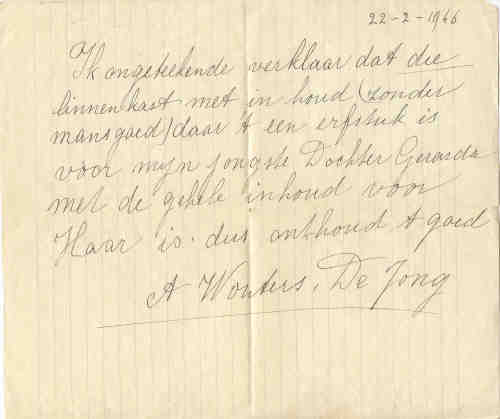 22-2-1946
Ik ongeteekende verklaar dat die
linnenkast met in houd (zonder
mansgoed) daar 't een erfstuk is
voor mijn jongste Dochter Gerarda
met de gehele inhoud voor
Haar is. dus onthoud 't goed
A Wouters. De Jong